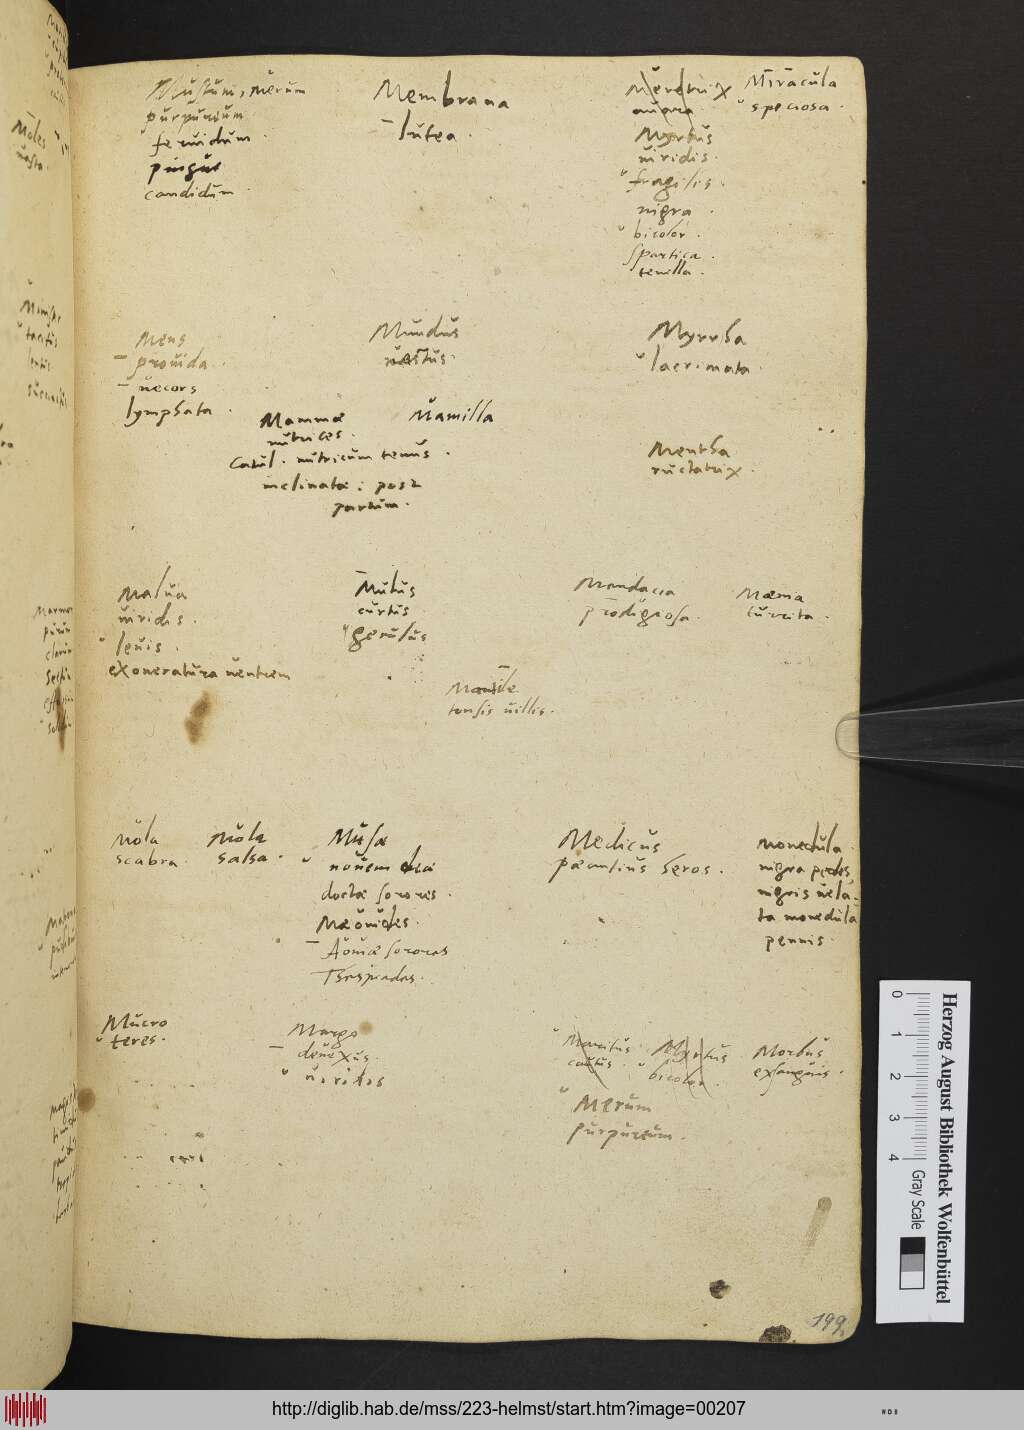 Mustum, merum
purpureum
feruidum
pingue
candidum
Membrana
lutea.
Meretrix
auara
Myrtus
uiridis.
fragilis.
nigra.
bicolor.
spartica.
tenella.
Miracula
speciosa.
Mens
prouida.
uecors
lymphata.
Mundus
uastus.
Myrrha
lacrimata.
Mammæ
nutrices.
Catul. nutricum tenus.
inclinatæ: post
partum.
Mamilla
Mentha
ructatrix.
Malua
uiridis.
leuis.
exoneratura uentrem
Mulus
curtus
gerulus
Mendacia
prodigiosa.
Mæna
turrita.
Mantile
tonsis uillis.
Mola
scabra.
Mola
salsa.
Musæ
nouem deæ
doctæ sorores.
Mæonides.
Aoniæ sorores
Thespiades.
Medicus
pæantius heros.
Monedula
nigra pedes
nigris uela-
ta monedula
pennis.
Mucro
teres.
Margo
deuexus.
uiridis
Maritus
cautus.
Myrtus
bicolor.
Morbus
exanguis.
Merum
purpureum.
199.
Moles
uasta.
Herzog August Bibliothek Wolfenbüttel
0 1 2 3 4
Gray Scale
http://diglib.hab.de/mss/223-helmst/start.htm?image=00207